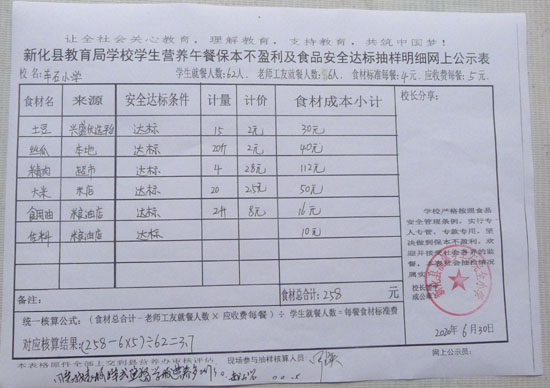 让全社会关心教育，理解教育，支持教育，共筑中国梦！
新化县教育局学校学生营养午餐保本不盈利及食品安全达标抽样明细网上公示表
校名： 学生就餐人数：62人、老师工友就餐人数：6人、食材标准每餐：4元，应收费每餐：5元。
食材名 来源 安全达标条件 计量 计价 食材成本小计 校长分享：
土豆 达标 15 2元 30元
丝瓜 本地 达标 20斤 2元 40元
精肉 超市 达标 4 28元 112元
大米 米店 达标 20 2.5元 50元
食用油 粮油店 达标 2斤 8元 16元
佐料 粮油店 达标 10元
学校严格按照食品
安全管理条例，实行专
人专管、专款专用，坚
决做到保本不盈利，欢
迎并接受社会各界的监
督，
备注： 食材总合计：258 元
统一核算公式：（食材总合计－老师工友就餐人数×应收费每餐）÷学生就餐人数＝每餐食材标准费
对应核算结果：(258-6×5)÷62=3.7
2020年6月30日
现场参与抽样核算人员： 网上公示员：